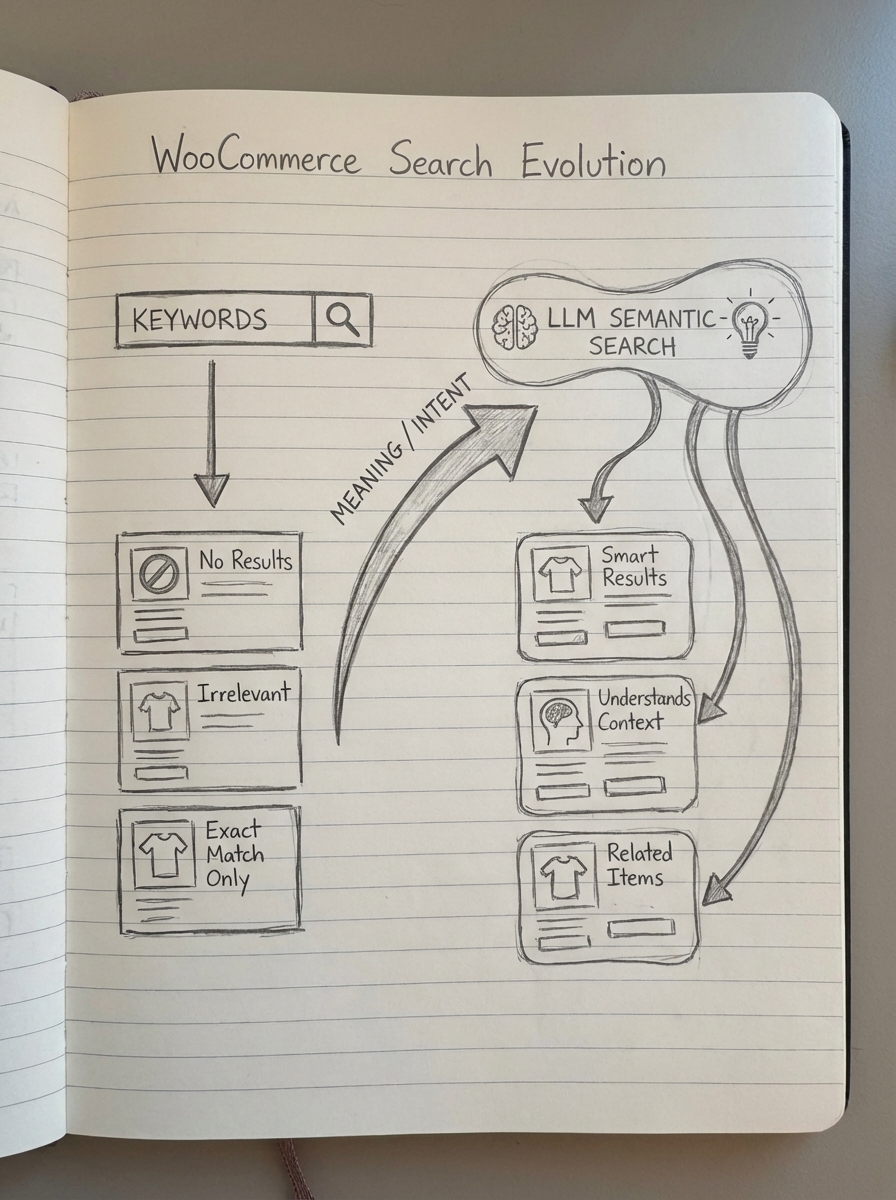 WooCommerce Search Evolution
KEYWORDS
No Results
Irrelevant
Exact
Match
Only
MEANING / INTENT
LLM SEMANTIC
SEARCH
Smart
Results
Understands
Context
Related
Items